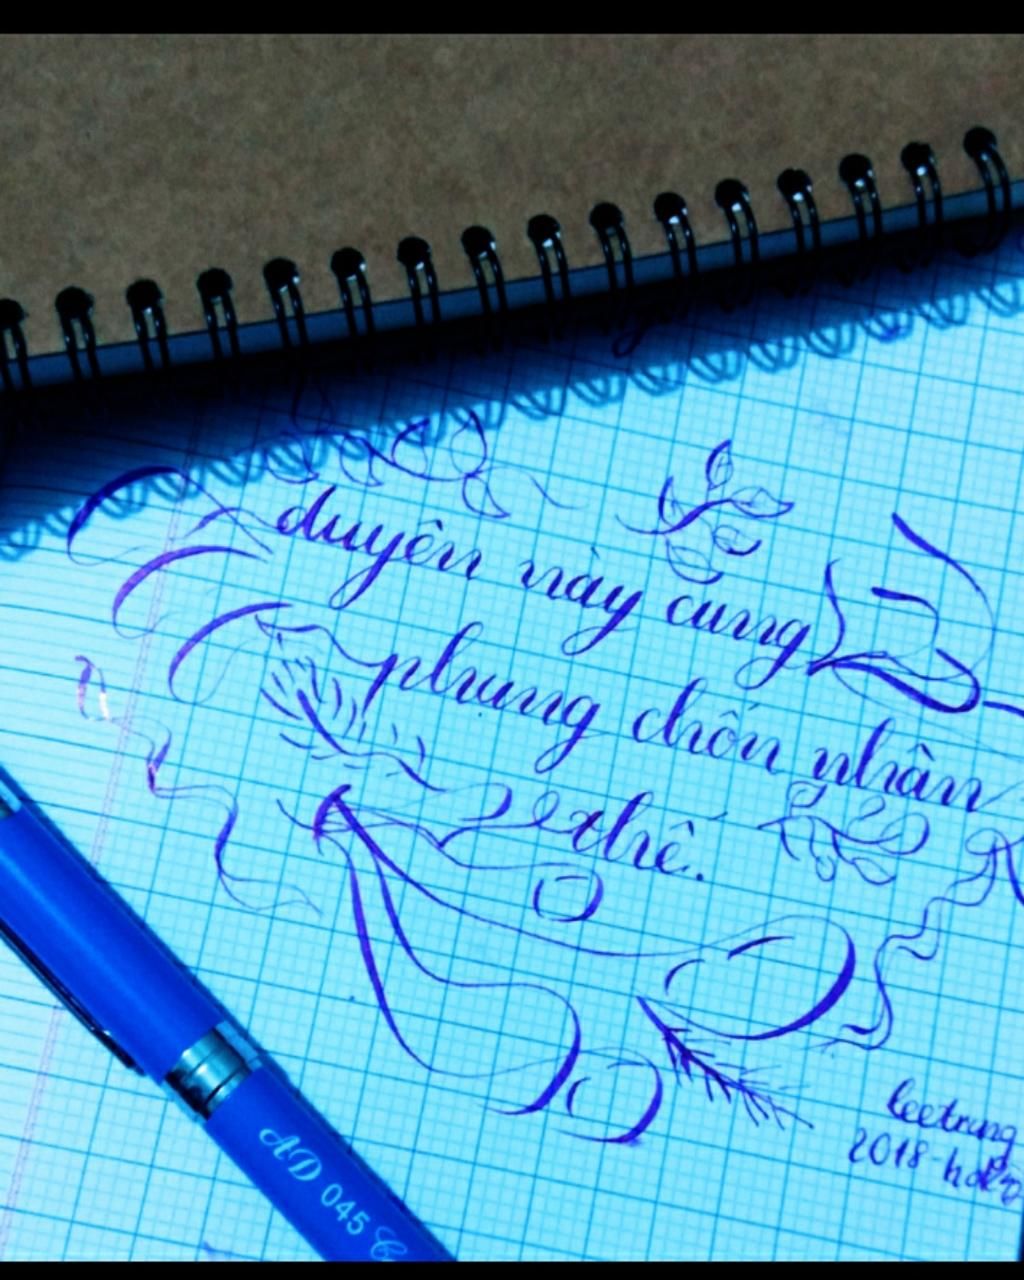 duyên này cung
phung chốn nhân
thế.
leetrung
2018-
AD 045